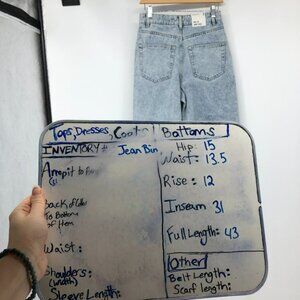 Tops, Dresses, Coats
Bottoms
INVENTORY #
Jean Bin
Armpit to
Back of
To Bottom
of Hem
Waist:
Shoulders:
(width)
Sleeve Length:
Hip: 15
Waist: 13.5
Rise: 12
Inseam 31
Full Length: 43
Other
Belt Length:
Scarf length: